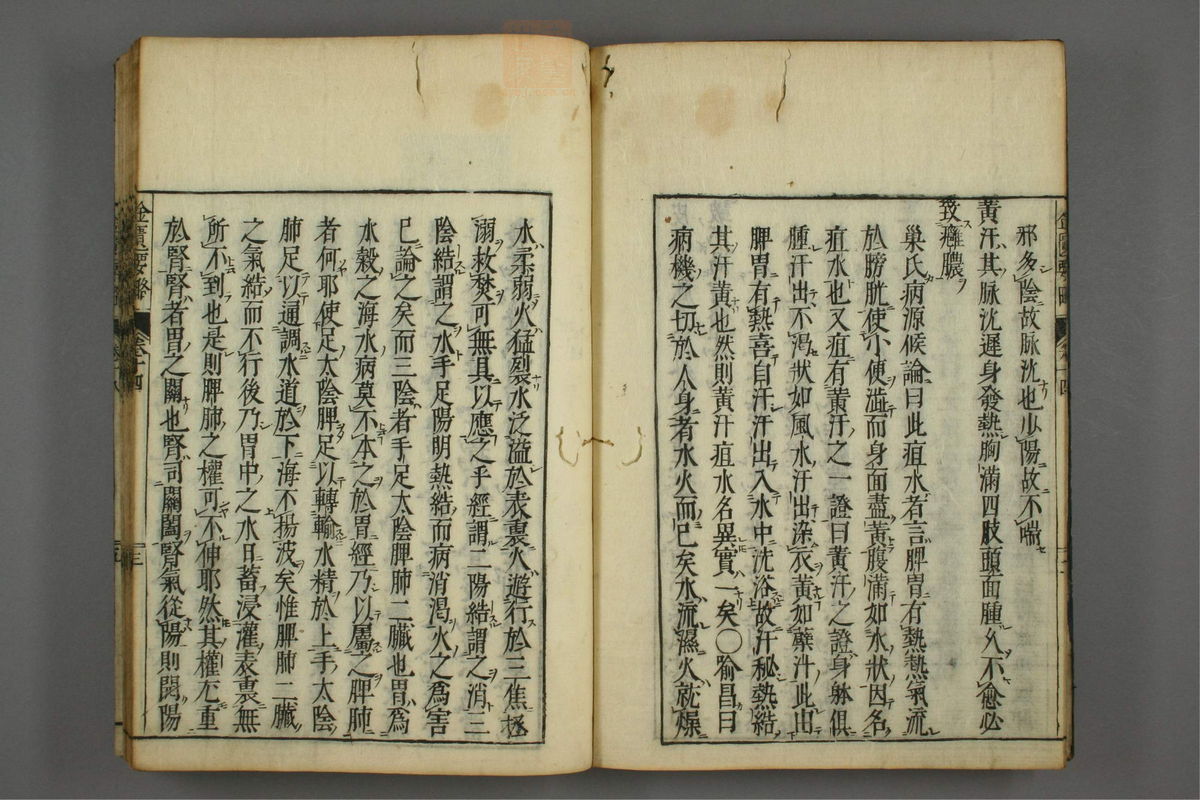 邪多陰故脉沈也少陽故不喘
黃汗其脉沈遲身發熱胸滿四肢頭面腫久不愈必
致癰膿
巢氏病源候論曰此疸水者言脾胃有熱熱氣流
於膀胱使小便澁而身面盡黃腹滿如水狀因名
疸水也又疸有黃汗之一證曰黃汗之證身躰俱
腫汗出不渴狀如風水汗出染衣黃如蘗汁此由
脾胃有熱喜自汗汗出入水中沈浴故汗秘熱結
其汗黃也然則黃汗疸水名異實一矣○喻昌曰
病機之切於人身者水火而已矣水流濕火就燥
水柔弱火猛裂水泛溢於表裏火遊行於三焦拯
溺救焚可無具以應之乎經謂二陽結謂之消三
陰結謂之水手足陽明熱結而病消渴火之為害
已論之矣而三陰者手足太陰脾肺二臟也胃為
水穀之海水病莫不本之於胃經乃以屬之脾肺
者何耶使足太陰脾足以轉輸水精於上手太陰
肺足以通調水道於下海不揚波矣惟脾肺二臟
之氣結而不行後乃胃中之水日蓄浸灌表裏無
所不到也是則脾肺之權可不伸耶然其權尤重
於腎腎者胃之關也腎司開闔腎氣從陽則開陽
金匱要略
卷十四